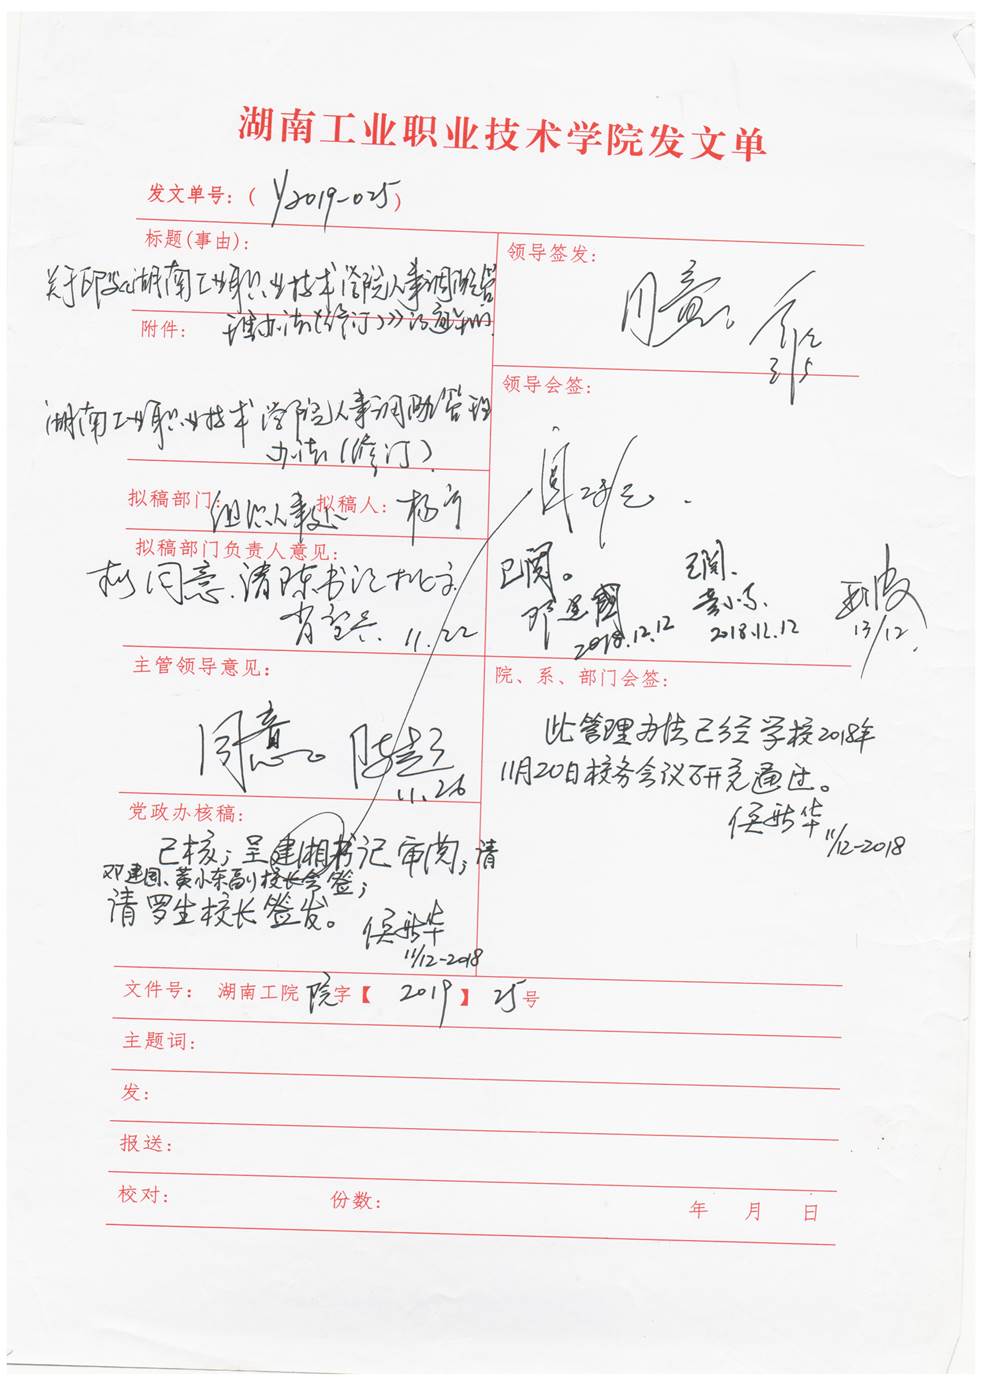 湖南工业职业技术学院发文单
发文单号：( Y2019-025 )
标题(事由)：
关于印发《湖南工业职业技术学院人事调配管
理办法(修订)》的通知
附件：
湖南工业职业技术学院人事调配管理
办法(修订)
拟稿部门：组织人事处 拟稿人：杨
拟稿部门负责人意见：
拟同意，请陈书记批示
11.22
主管领导意见：
同意。
11.26
党政办核稿：
已核；呈建湘书记审阅；请
邓建国、黄小东副校长会签；
请罗生校长签发。
侯新华
11/12-2018
领导签发：
同意。
领导会签：
已阅。
邓建國
2018.12.12
已阅.
黄小东.
2018.12.12
13/12.
院、系、部门会签：
此管理办法已经学校2018年
11月20日校务会议研究通过。
侯新华
11/12-2018
文件号： 湖南工院 院 字【 2019 】 25 号
主题词：
发：
报送：
校对： 份数： 年 月 日